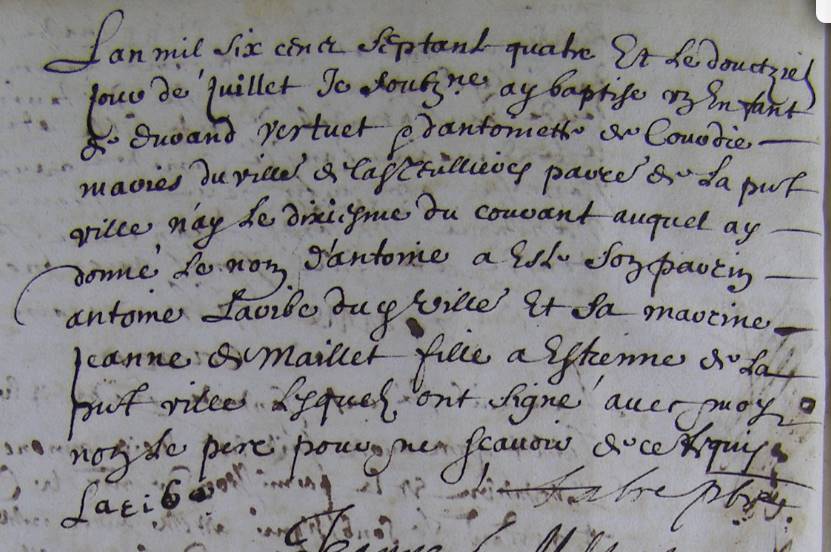 Lan mil six cent septant quatre Et Le douctziel
jour de Juillet Je soubzne ay baptise un Enfant
de durand vertuet & dantoinette de Courdie
maries du ville de Lasteullieres parre de La pnt
ville n'ay Le dixiesme du courant auquel ay
donné Le nom d'antoine a Este son parrin
antoine Laribe dud ville Et sa marrine
Jeanne de Maillet fille a Estienne de La
pnt ville Lesquels ont signe avec moy
non Le pere pour ne scavoir de ce Requis
Laribe fabre pbre
Jeanne